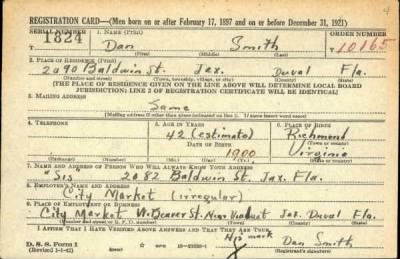 REGISTRATION CARD—(Men born on or after February 17, 1897 and on or before December 31, 1921)
SERIAL NUMBER 1. NAME (Print) ORDER NUMBER
1824 Dan Smith 10165
(First) (Middle) (Last)
2. PLACE OF RESIDENCE (Print)
2090 Baldwin St. Jax. Duval Fla.
(Number and street) (Town, township, village, or city) (County) (State)
[THE PLACE OF RESIDENCE GIVEN ON THE LINE ABOVE WILL DETERMINE LOCAL BOARD
JURISDICTION; LINE 2 OF REGISTRATION CERTIFICATE WILL BE IDENTICAL]
3. MAILING ADDRESS
Same
[Mailing address if other than place indicated on line 2. If same insert word same]
4. TELEPHONE 5. AGE IN YEARS 6. PLACE OF BIRTH
42 (estimate) Richmond
DATE OF BIRTH (Town or county)
1900 Virginia
(Exchange) (Number) (Mo.) (Day) (Yr.) (State or country)
7. NAME AND ADDRESS OF PERSON WHO WILL ALWAYS KNOW YOUR ADDRESS
"Sis" 2082 Baldwin St. Jax. Fla.
8. EMPLOYER'S NAME AND ADDRESS
City Market (irregular)
9. PLACE OF EMPLOYMENT OR BUSINESS
City Market W. Beaver St. Near Viaduct Jax. Duval Fla.
(Number and street or R. F. D. number) (Town) (County) (State)
I AFFIRM THAT I HAVE VERIFIED ABOVE ANSWERS AND THAT THEY ARE TRUE.
His mark
X Dan Smith
D. S. S. Form 1
(Revised 1-1-42) (over)
(Registrant's signature)